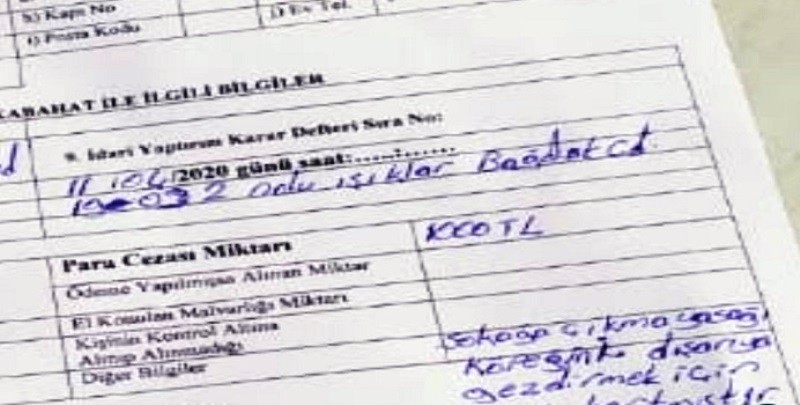 h) Kapı No
i) Posta Kodu
j) Ev Tel.
KABAHAT İLE İLGİLİ BİLGİLER
9. İdari Yaptırım Karar Defteri Sıra No:
11/04/2020 günü saat:......:......
ışıklar Bağdat Cd.
Para Cezası Miktarı
1000 TL
Ödeme Yapılmışsa Alınan Miktar
El Konulan Malvarlığı Miktarı
Kişinin Kontrol Altına
Alınıp Alınmadığı
Diğer Bilgiler
sokağa çıkma yasağı
dışarıya
gezdirmek için